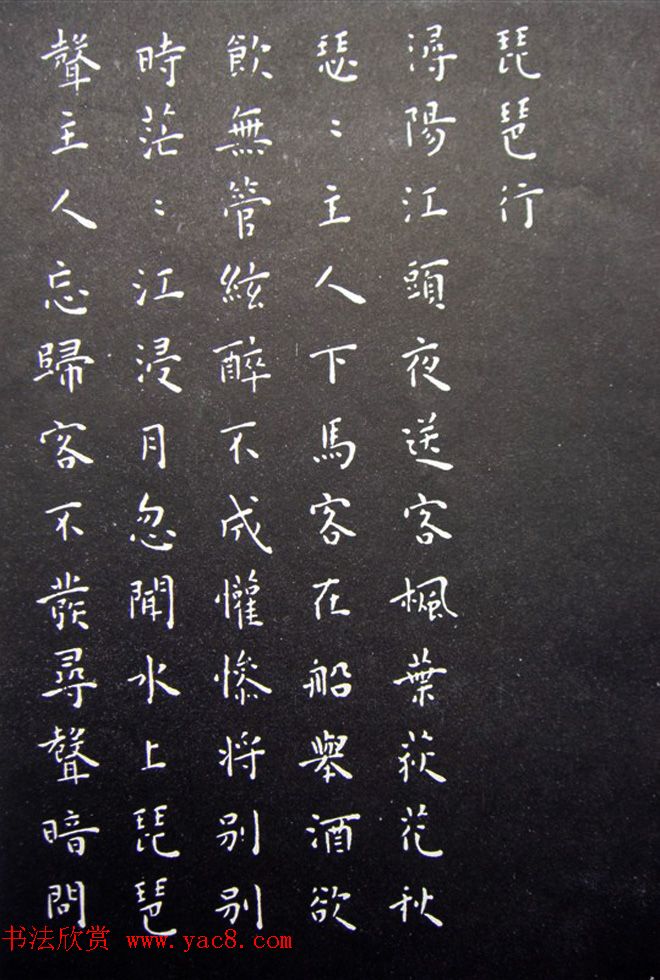 琵琶行
潯陽江頭夜送客楓葉荻花秋
瑟〻主人下馬客在船舉酒欲
飲無管絃醉不成懽慘将别别
時茫〻江浸月忽聞水上琵琶
聲主人忘歸客不發尋聲暗問
书法欣赏 www.yac8.com